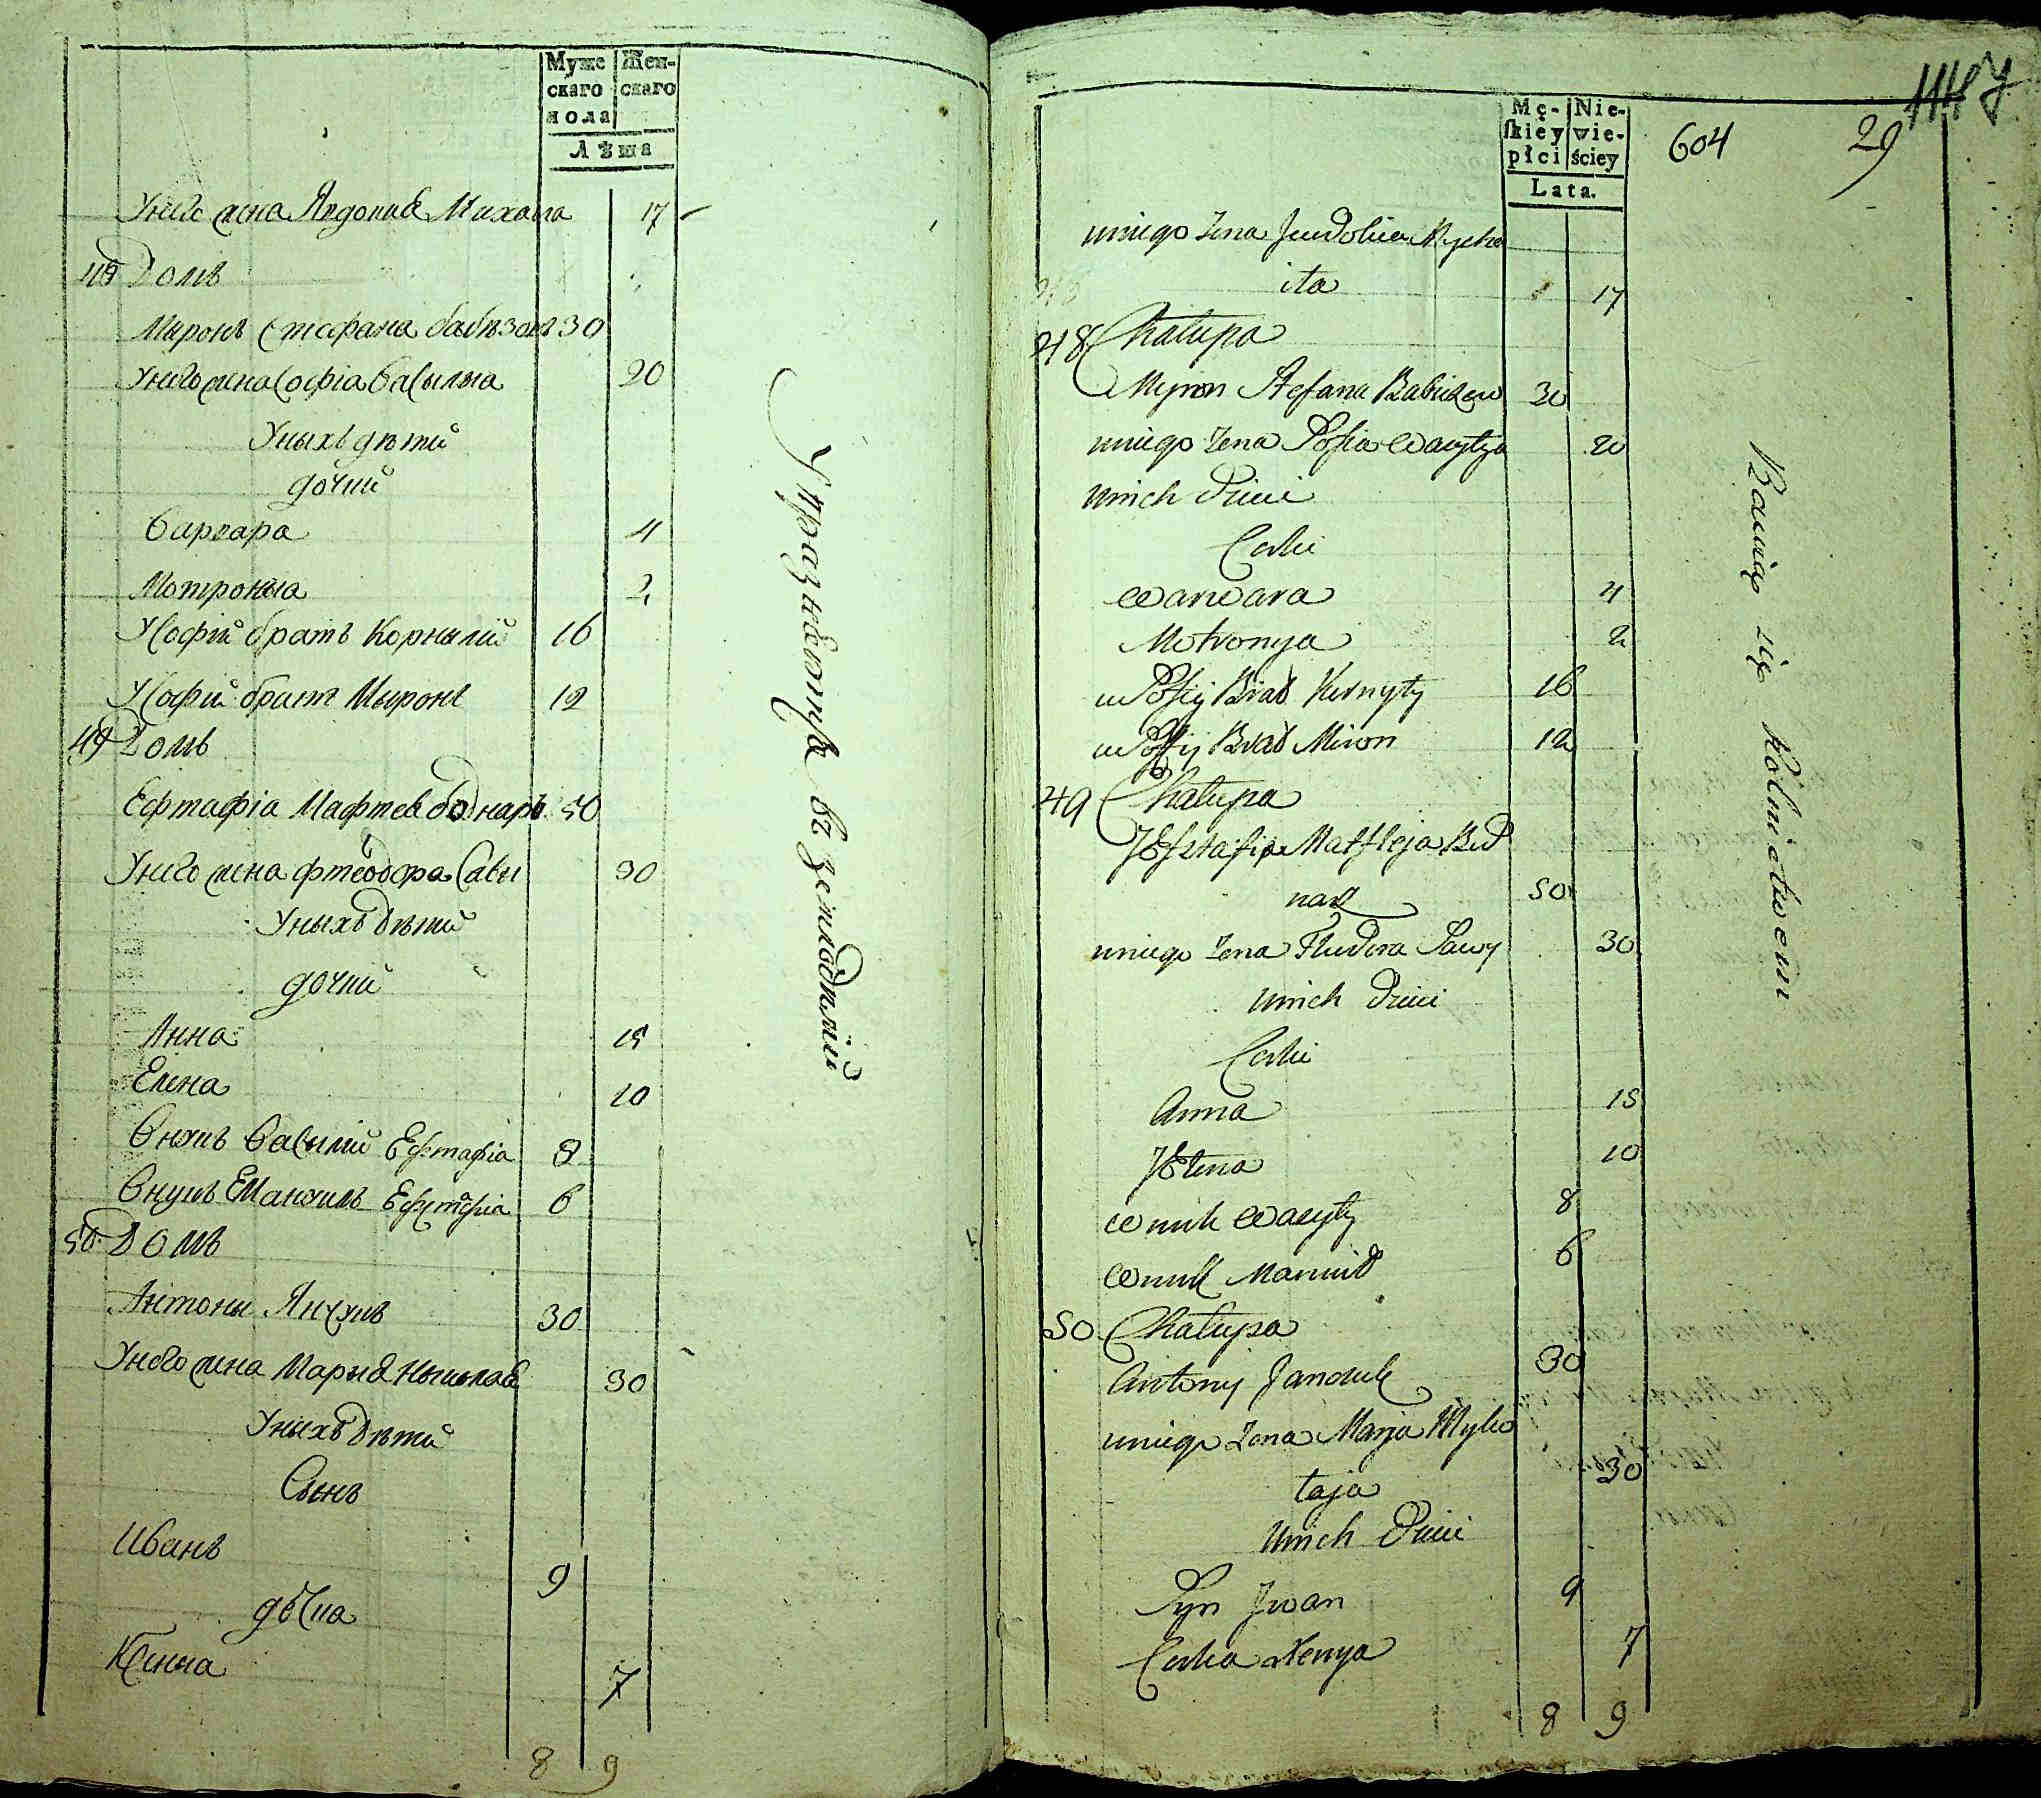 Муже
скаго
пола
Жен-
скаго
Лѣта
Унего жена Явдопиа Михаила 17
48 Домъ
Миронъ Стефана бабѣзонъ 30
Унего жена Софіа Васылыа 20
Уныхъ дѣтий
дочии
Варвара 4
Мотроныа 2
У Софій братъ Корнылій 16
У Софій братъ Мыронъ 12
49 Домъ
Ефтафіа Мафтеа боднаръ 50
Унего жена фтеодора Савы 30
Уныхъ дѣтий
дочии
Анна 15
Елена 10
Внукъ Васылій Ефтафіа 8
Внукъ Ефтафіа 6
50 Домъ
Антоны Янчукъ 30
Унего жена Марыа Ныколаа 30
Уныхъ дѣтий
Сынъ
Иванъ 9
дочка
Ксеныа 7
8 9
Упразнаютца въ земледилій
Mę-
skiey
płci
Nie-
wie-
ściey
Lata.
604
29
uniego Żena Jewdokia Mycha
iła 17
48 Chałupa
Myron Stefana Babiżow 30
uniego Żena Sofia Wasylya 20
unich Dzieci
Corki
Warwara 4
Motronya 2
u Sofij Brad Kornyły 16
u Sofij Brad Miron 12
49 Chałupa
Jefstafia Maftteja Bod
nar 50
uniego Żena Fteodora Sawy 30
unich Dzieci
Corki
Anna 15
Jełena 10
Wnuk Wasyły 8
Wnuk Manuił 6
50 Chałupa
Antony Janczuk 30
uniego Żena Marja Myko
łaja 30
unich Dzieci
Syn Jwan 9
Corka Xenya 7
8 9
Bawią się Rolnictwem